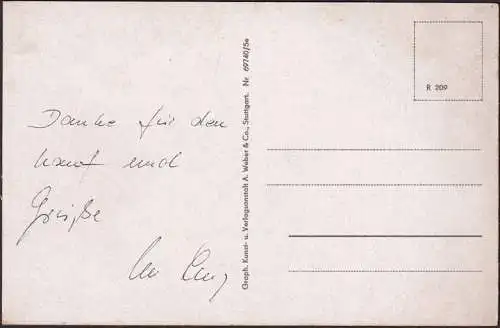 Danke für den
Kauf und
Grüße
Graph. Kunst- u. Verlagsanstalt A. Weber & Co., Stuttgart. Nr 69740/5e
R 209